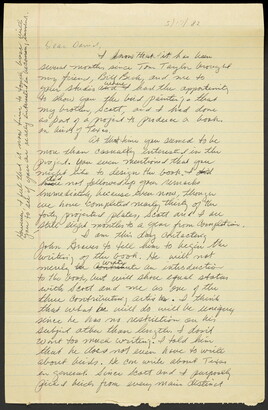 2/1/82
Dear David,
I know that it has been
several months since Tom Taylor brought
my friend, Bill and me to
your studio where I had the opportunity
to show you the bird paintings that
my brother, Scott, and I had done
as part of a project to produce a book
on birds of Texas.
At that time you seemed to be
more than casually interested in the
project. You even mentioned that you
might like to design the book. I did
not followup your remarks
immediately because even now, though
we have completed nearly thirty of the
forty projected plates, Scott and I are
still eight months to a year from completion.
I am this day contacting
John Graves to tell him to begin the
writing of the book. He will not
merely write an introduction
to the book, but will share equal status
with Scott and me as one of the
three contributing artists. I think
that what he will do will be
since he has no restriction on his
subject other than length. I don't
want too much writing. I told him
that he does not even have to write
about birds. He can write about Texas
in general since Scott and I purposely
picked birds from every main district